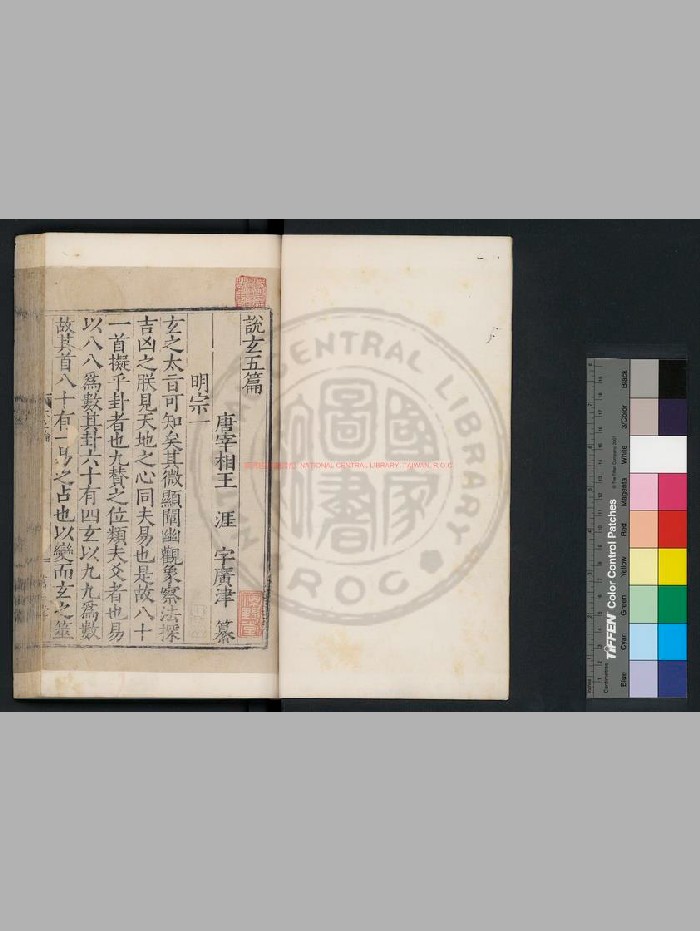 說玄五篇
唐宰相王 涯 字廣津 纂
明宗一
玄之太旨可知矣其微顯闡幽觀象察法探
吉凶之朕見天地之心同夫易也是故八十
一首擬乎卦者也九贊之位類夫爻者也易
以八八爲數其卦六十有四玄以九九爲數
故其首八十有一易之占也以變而玄之筮
NATIONAL CENTRAL LIBRARY, TAIWAN, R.O.C
CENTRAL LIBRARY
R.O.C
國家圖書館
TIFFEN Color Control Patches
Blue
Cyan
Green
Yellow
Red
Magenta
White
3/Color
Black